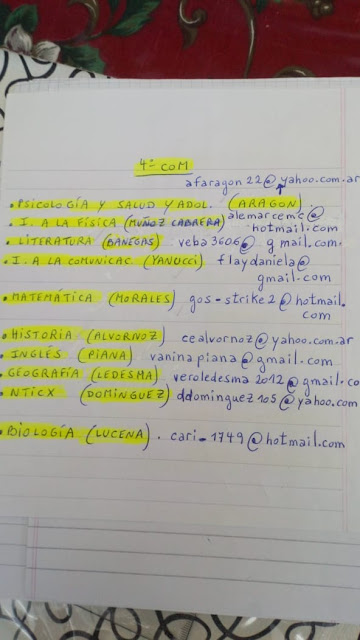 4º COM
afaragon22@yahoo.com.ar
• PSICOLOGÍA Y SALUD Y ADOL. (ARAGON)
• I. A LA FÍSICA (MUÑOZ CABRERA) alemarceme@
hotmail.com
• LITERATURA (BANEGAS) veba3606@gmail.com.
• I. A LA COMUNICAC. (YANUCCI) flaydaniela@
gmail.com
• MATEMÁTICA (MORALES) gos-strike2@hotmail.
com
• HISTORIA (ALVORNOZ) cealvornoz@yahoo.com.ar
• INGLÉS (PIANA) vaninapiana@gmail.com
• GEOGRAFÍA (LEDESMA) veroledesma2012@gmail.co
• NTICX (DOMINGUEZ) ddominguez105@yahoo.com
• BIOLOGÍA (LUCENA). cari-1749@hotmail.com